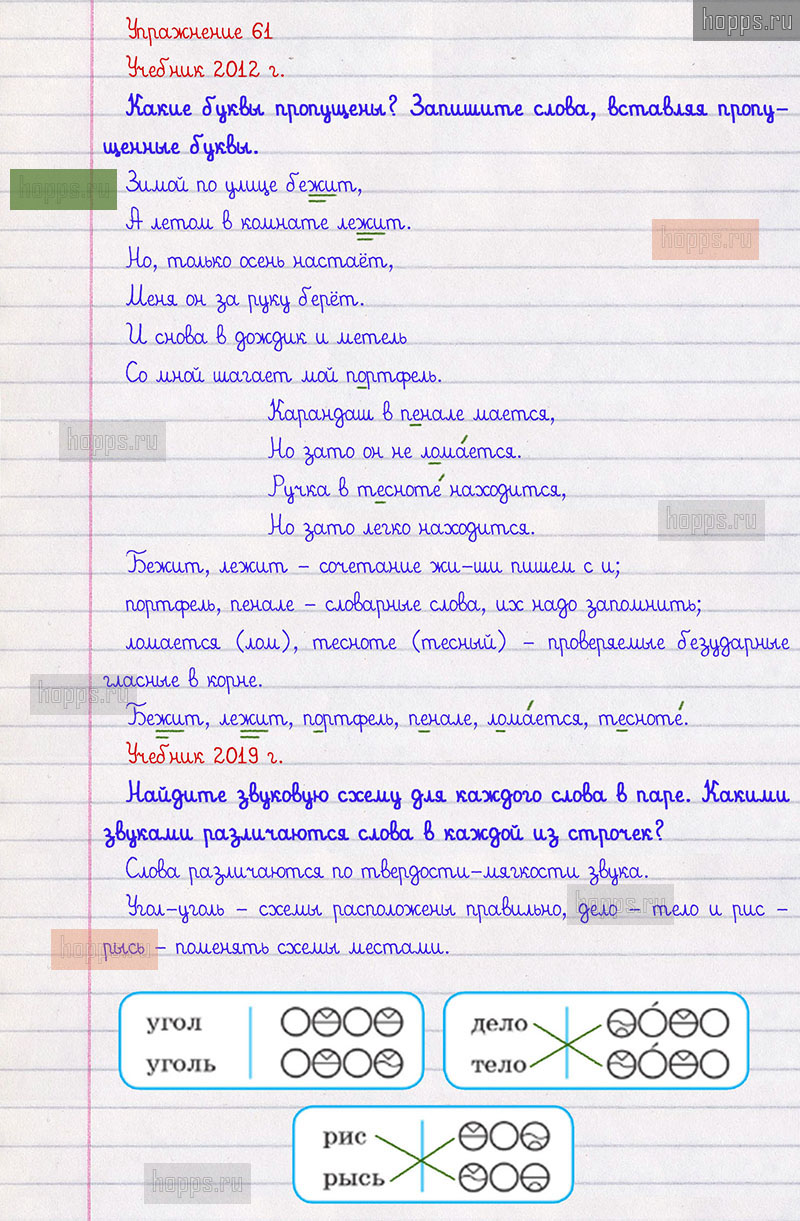 hopps.ru
Упражнение 61
Учебник 2012 г.
Какие буквы пропущены? Запишите слова, вставляя пропу-
щенные буквы.
hopps.ru
Зимой по улице бежит,
А летом в комнате лежит.
hopps.ru
Но, только осень настаёт,
Меня он за руку берёт.
И снова в дождик и метель
Со мной шагает мой портфель.
Карандаш в пенале мается,
hopps.ru
Но зато он не ломáется.
Ручка в теснотé находится,
hopps.ru
Но зато легко находится.
Бежит, лежит – сочетание жи-ши пишем с и;
портфель, пенале – словарные слова, их надо запомнить;
ломается (лом), тесноте (тесный) – проверяемые безударные
гласные в корне.
hopps.ru
Бежит, лежит, портфель, пенале, ломáется, теснотé.
Учебник 2019 г.
Найдите звуковую схему для каждого слова в паре. Какими
звуками различаются слова в каждой из строчек?
Слова различаются по твердости-мягкости звука.
hopps.ru
Угол-уголь – схемы расположены правильно, дело – тело и рис –
рысь – поменять схемы местами.
hopps.ru
угол
уголь
дело
тело
рис
рысь
hopps.ru